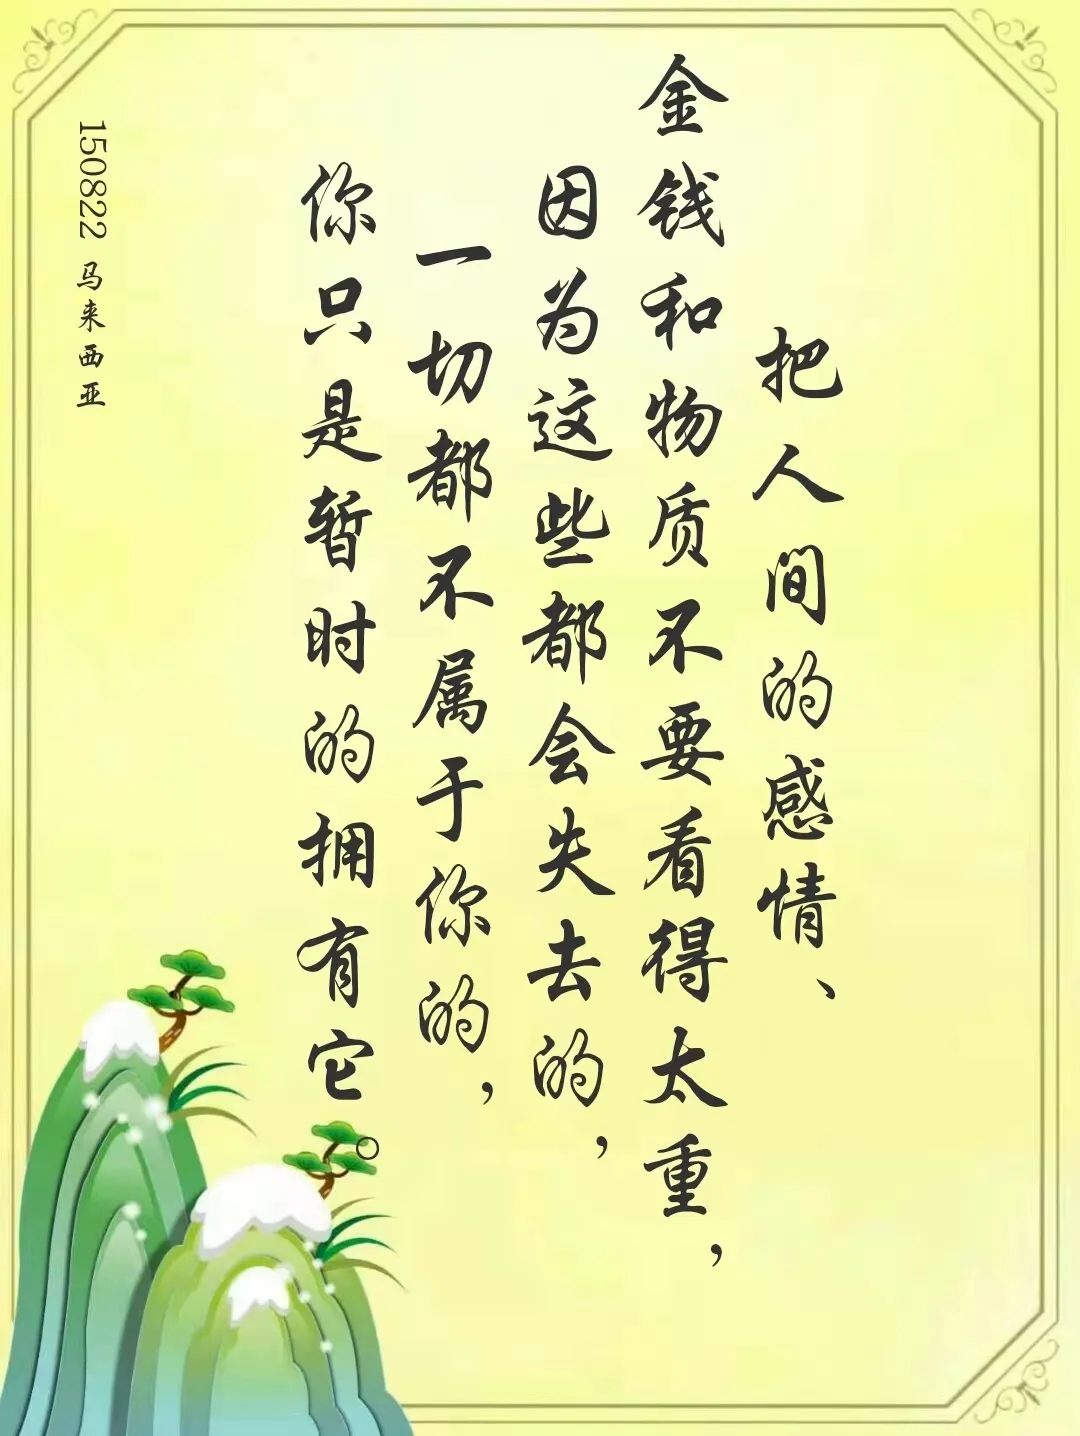 把人间的感情、
金钱和物质不要看得太重，
因为这些都会失去的，
一切都不属于你的，
你只是暂时的拥有它。
150822 马来西亚